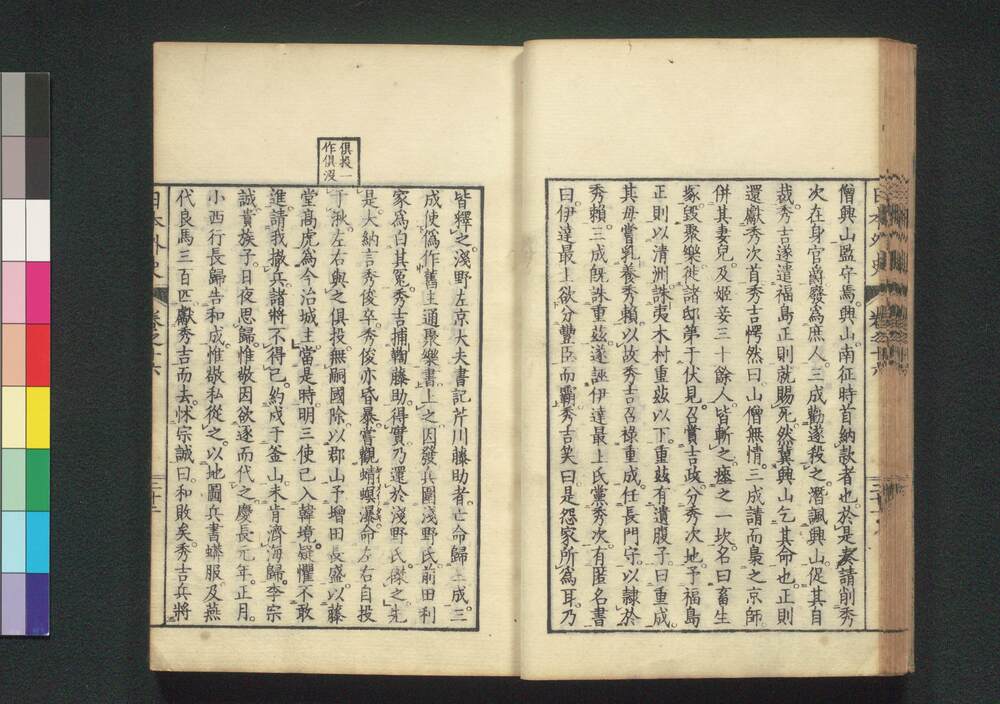 僧興山監守焉。興山南征時首納款者也。於是奏請削秀
次在身官爵。發爲庶人。三成勸遂殺之。潛諷興山促其自
裁。秀吉遂遣福島正則就賜死。然冀興山乞其命也。正則
還獻秀次首。秀吉愕然曰。山僧無情。三成請而梟之京師。
併其妻兒及姬妾三十餘人皆斬之。瘞之一坎。名曰畜生
塚。毀聚樂。徙諸邸第于伏見。召賞吉政。分秀次地。予福島
正則以清洲。誅夷木村重茲以下。重茲有遺腹子。曰重成。
其母嘗乳養秀賴。以故秀吉召祿重成。任長門守。以隸於
秀賴。三成旣誅重茲。遂誣伊達最上氏黨秀次。有匿名書
曰。伊達最上欲分豐臣而霸。秀吉笑曰。是怨家所爲耳。乃
皆釋之。淺野左京大夫書記芹川藤助者。亡命歸三成。三
成使僞作舊主通聚樂書上之。因發兵圍淺野氏。前田利
家爲白其冤。秀吉捕鞫藤助得實。乃還於淺野氏。磔之。先
是。大納言秀俊卒。秀俊亦昏暴。嘗觀蜻螟瀑。命左右自投
于湫。左右與之俱投。無嗣國除。以郡山予增田長盛。以藤
堂高虎爲今治城主。當是時。明三使已入韓境。疑懼不敢
進。請我撤兵。諸將不得已。約戍于釜山。未肯濟海歸。李宗
誠貴族子。日夜思歸。惟敬因欲逐而代之。慶長元年。正月。
小西行長歸告和成。惟敬私從之。以地圖兵書蟒服及燕
代良馬三百匹。獻秀吉而去。怵宗誠曰。和敗矣。秀吉兵將
俱投一
作俱沒
日本外史
卷之十六